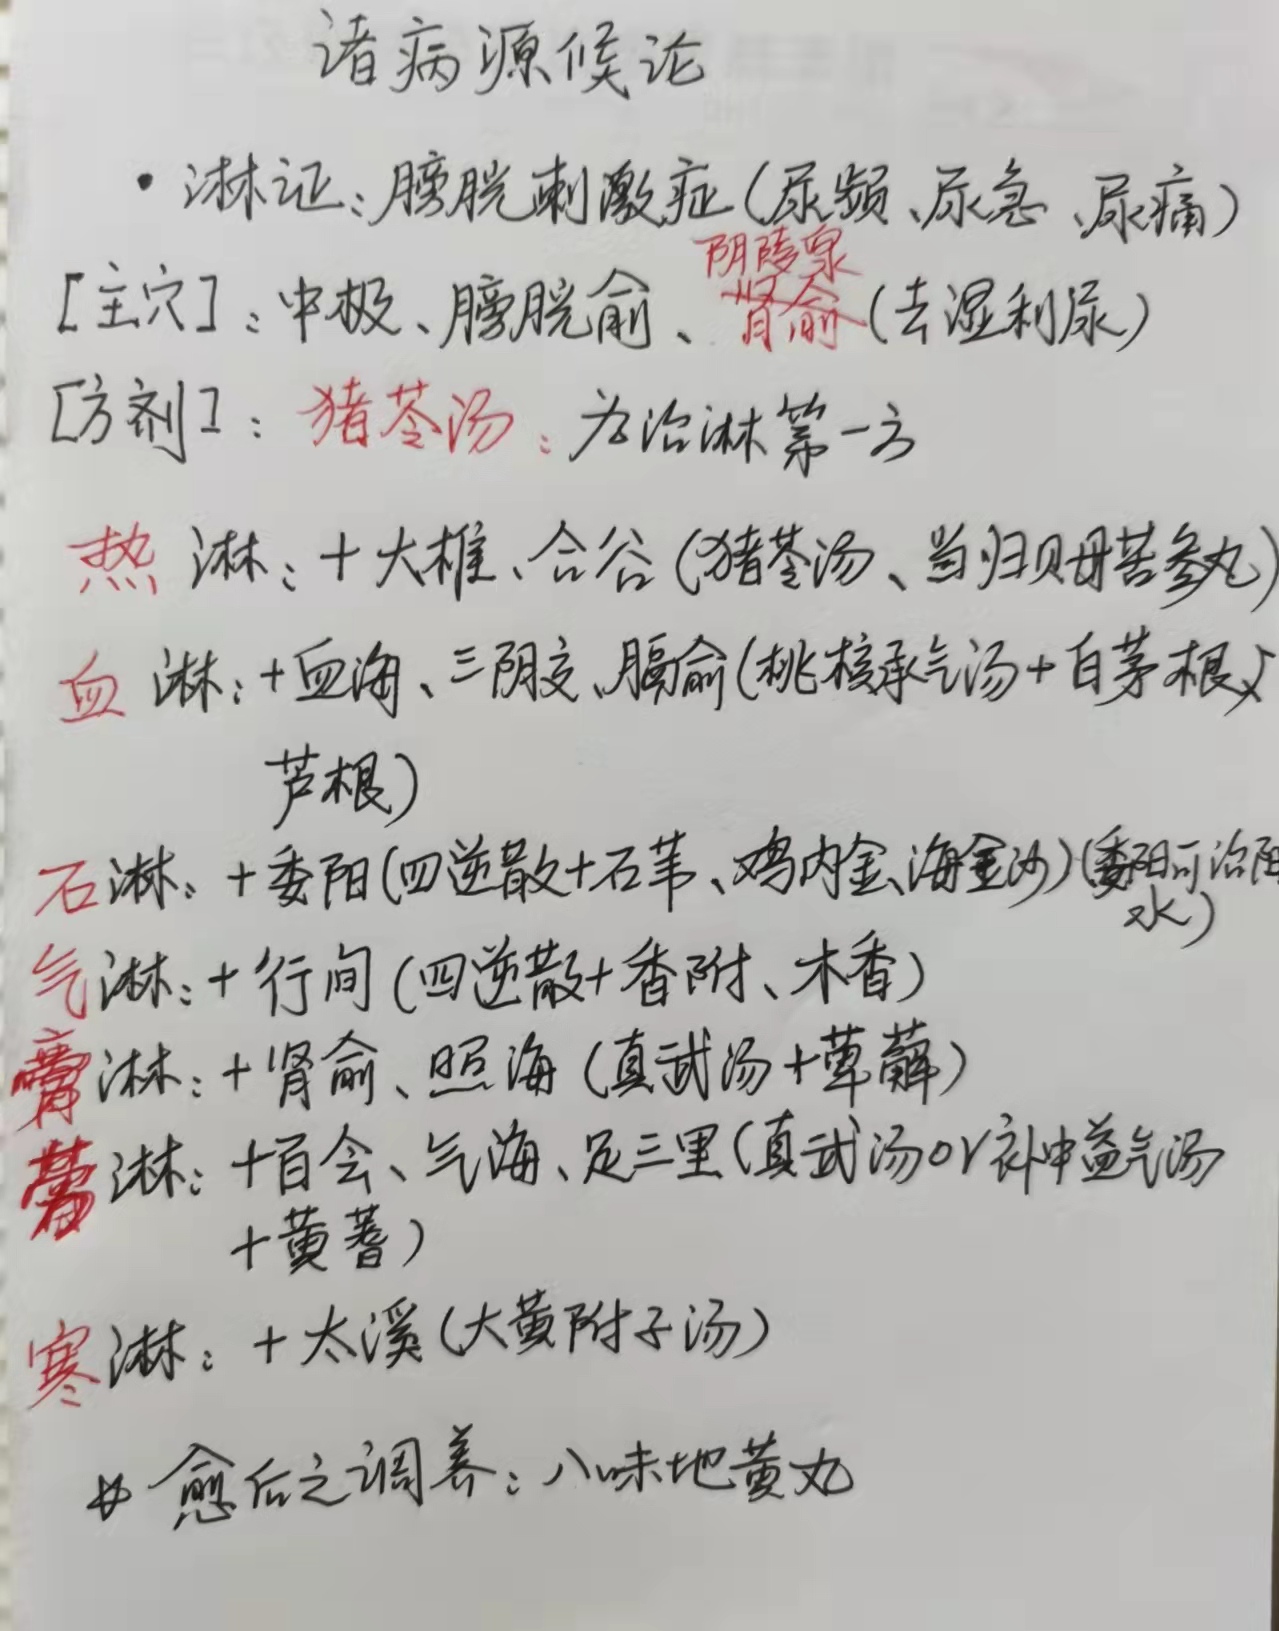 诸病源候论
• 淋证：膀胱刺激症（尿频、尿急、尿痛）
阴陵泉
[主穴]：中极、膀胱俞、肾俞（去湿利尿）
[方剂]：猪苓汤：为治淋第一方
热淋：+大椎、合谷（猪苓汤、当归贝母苦参丸）
血淋：+血海、三阴交、膈俞（桃核承气汤+白茅根、
芦根）
石淋：+委阳（四逆散+石苇、鸡内金、海金沙）（委阳可治阳
水）
气淋：+行间（四逆散+香附、木香）
膏淋：+肾俞、照海（真武汤+萆薢）
淋：+百会、气海、足三里（真武汤or补中益气汤
+黄蓍）
寒淋：+太溪（大黄附子汤）
愈后之调养：八味地黄丸